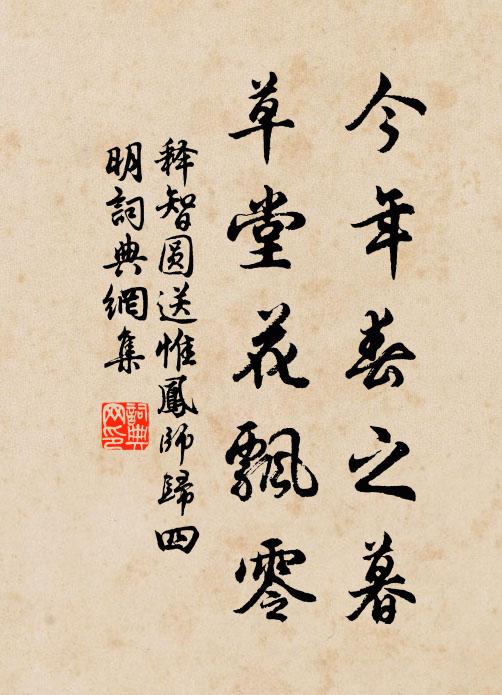 今年春之暮
草堂花飄零
释智圆送惟鳳师歸四
明詞典網集
詞典
网印